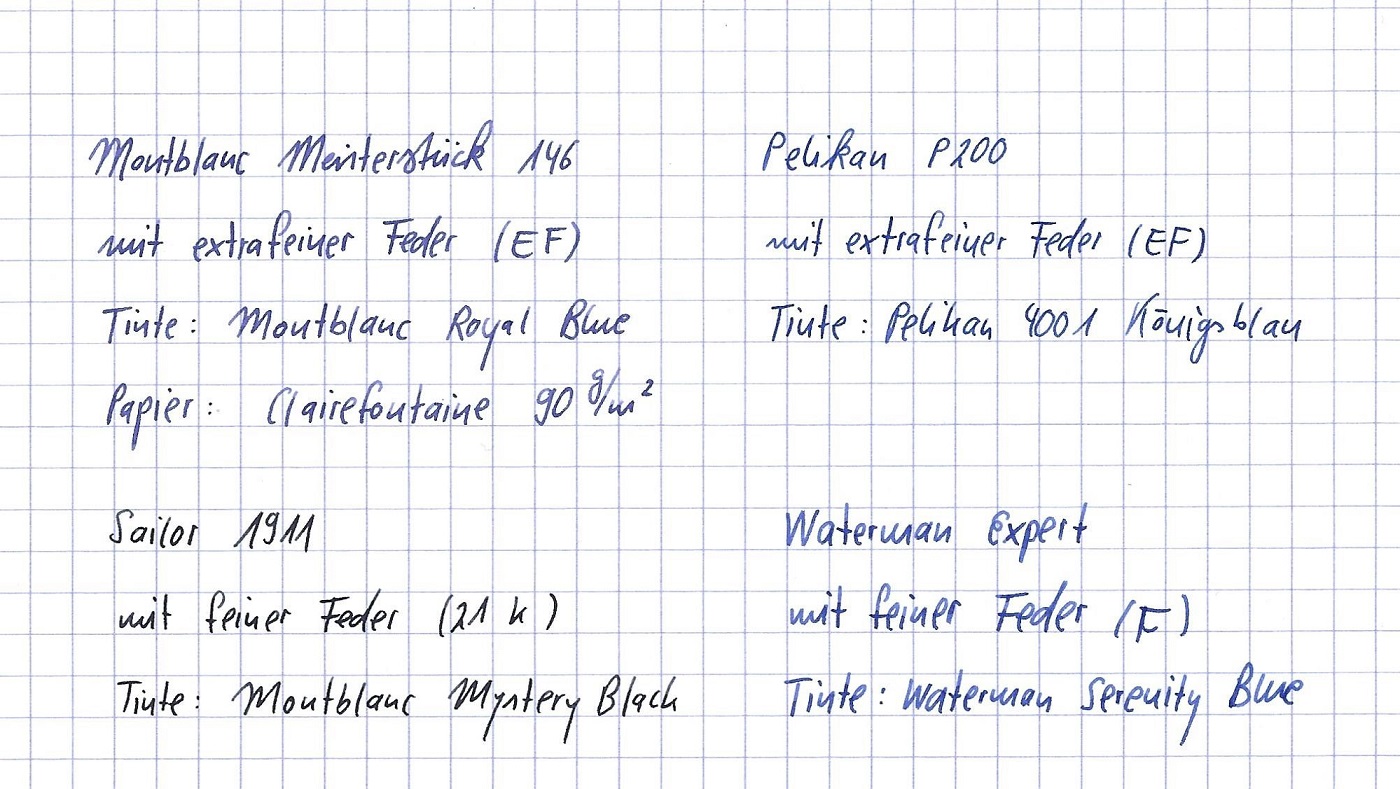 Montblanc Meisterstück 146
mit extrafeiner Feder (EF)
Tinte: Montblanc Royal Blue
Papier: Clairefontaine 90 g/m²
Pelikan P200
mit extrafeiner Feder (EF)
Tinte: Pelikan 4001 Königsblau
Sailor 1911
mit feiner Feder (21 k)
Tinte: Montblanc Mystery Black
Waterman Expert
mit feiner Feder (F)
Tinte: Waterman Serenity Blue